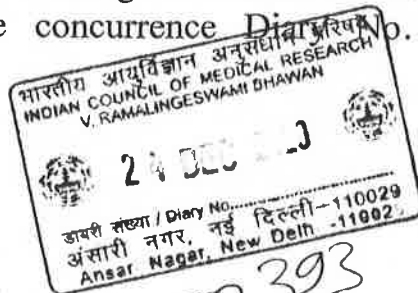 concurrence Diary No.
भारतीय आयुर्विज्ञान अनुसंधान परिषद
INDIAN COUNCIL OF MEDICAL RESEARCH
V. RAMALINGESWAMI BHAWAN
2 DEC
डायरी संख्या / Diary No..............................
अंसारी नगर, नई दिल्ली-110029
Ansar Nagar, New Delh -11002
393